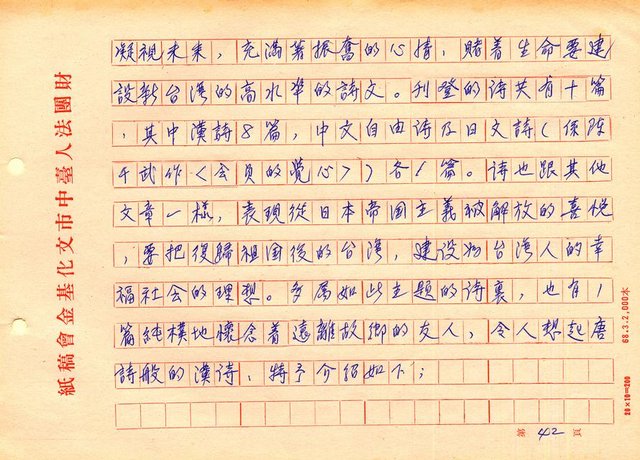 凝視未來，充滿著振奮的心情，賭着生命要建
設新台灣的高水準的詩文。刊登的诗共有十篇
，其中漢詩8篇，中文自由诗及日文詩（保阪
千武作〈会員的覺心〉）各1篇。诗也跟其他
文章一樣，表現從日本帝国主義被解放的喜悦
，要把復歸祖国後的台湾，建设为台湾人的幸
福社会的理想。多属如此主題的诗裏，也有1
篇純樸地懷念着遠離故鄉的友人，令人想起唐
詩般的漢诗，特予介紹如下；
財團法人臺中市文化基金會稿紙
68.3.2,000本
20×10=200
第 42 頁